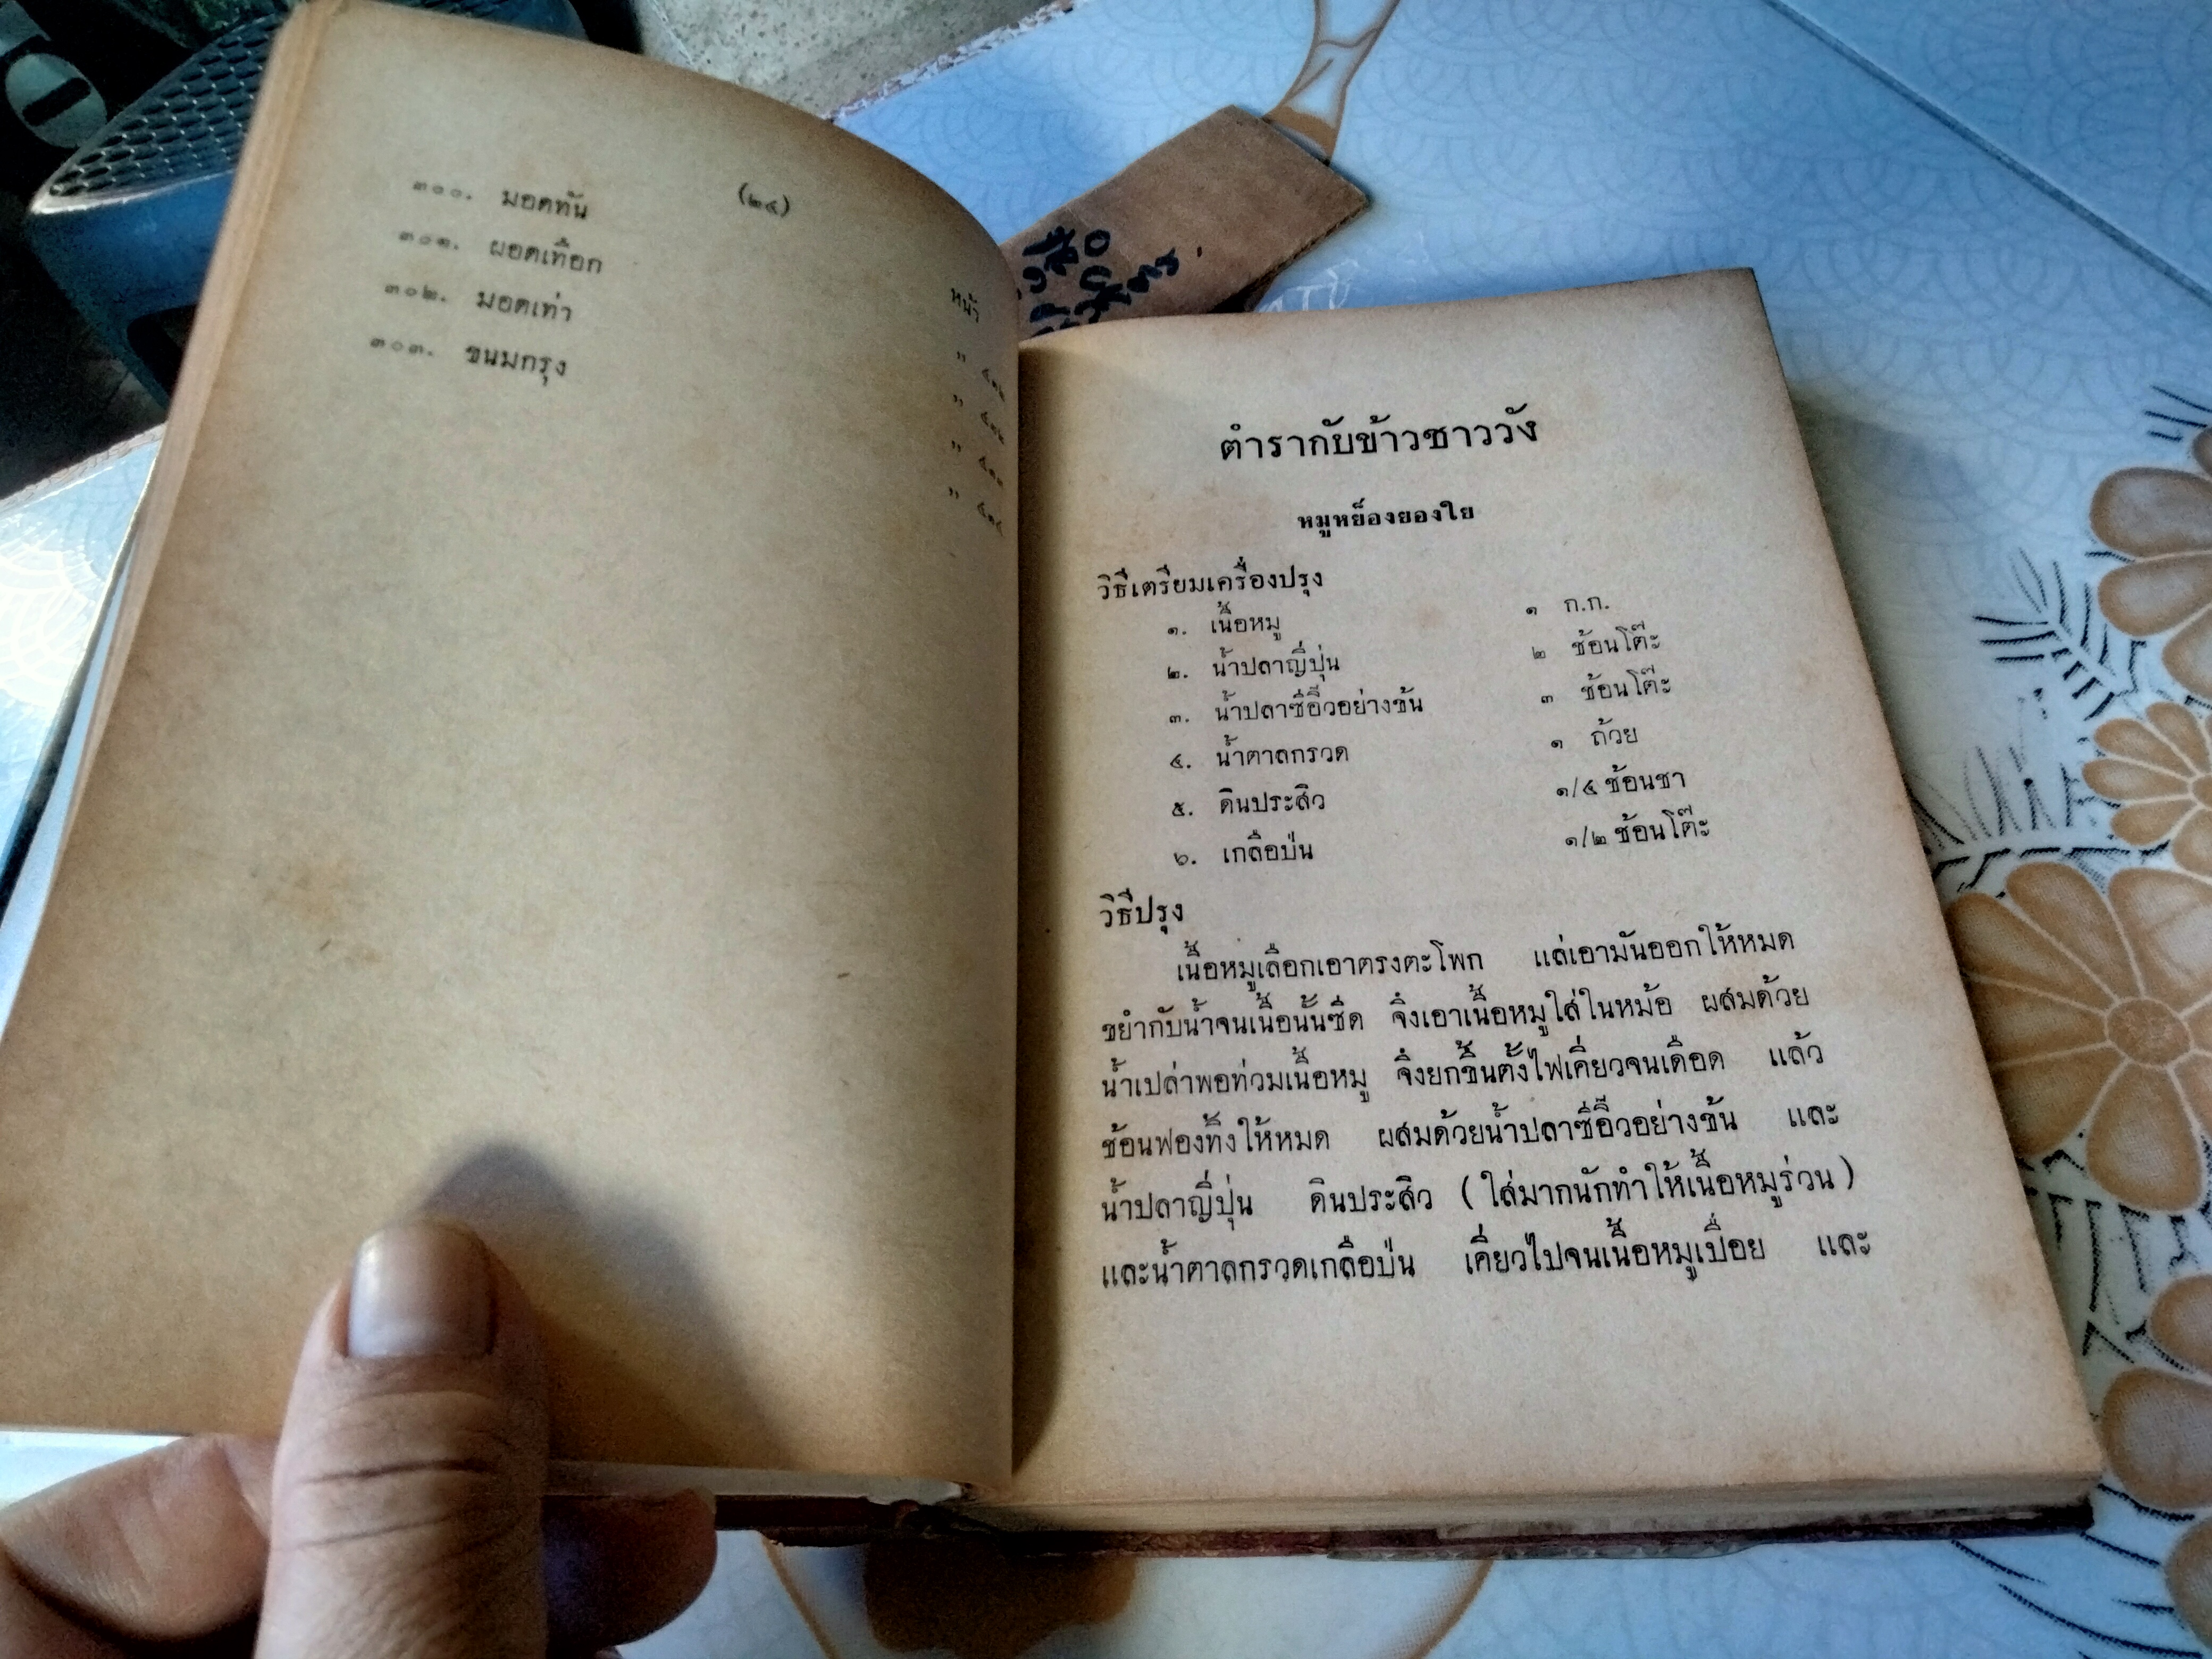 (๒๔)
หน้า
๓๐๐. มอดทัน " ๔๓๒
๓๐๑. ผอดเทือก " ๔๓๒
๓๐๒. มอดเท่า " ๔๓๓
๓๐๓. ขนมกรุง " ๔๓๔
ตำรากับข้าวชาววัง
หมูหย็องยองใย
วิธีเตรียมเครื่องปรุง
๑. เนื้อหมู ๑ ก.ก.
๒. น้ำปลาญี่ปุ่น ๒ ช้อนโต๊ะ
๓. น้ำปลาซีอิ๊วอย่างข้น ๓ ช้อนโต๊ะ
๔. น้ำตาลกรวด ๑ ถ้วย
๕. ดินประสิว ๑/๔ ช้อนชา
๖. เกลือป่น ๑/๒ ช้อนโต๊ะ
วิธีปรุง
เนื้อหมูเลือกเอาตรงตะโพก แล่เอามันออกให้หมด
ขยำกับน้ำจนเนื้อนั้นซีด จึงเอาเนื้อหมูใส่ในหม้อ ผสมด้วย
น้ำเปล่าพอท่วมเนื้อหมู จึงยกขึ้นตั้งไฟเคี่ยวจนเดือด แล้ว
ช้อนฟองทิ้งให้หมด ผสมด้วยน้ำปลาซีอิ๊วอย่างข้น และ
น้ำปลาญี่ปุ่น ดินประสิว (ใส่มากนักทำให้เนื้อหมูร่วน)
และน้ำตาลกรวดเกลือป่น เคี่ยวไปจนเนื้อหมูเปื่อย และ